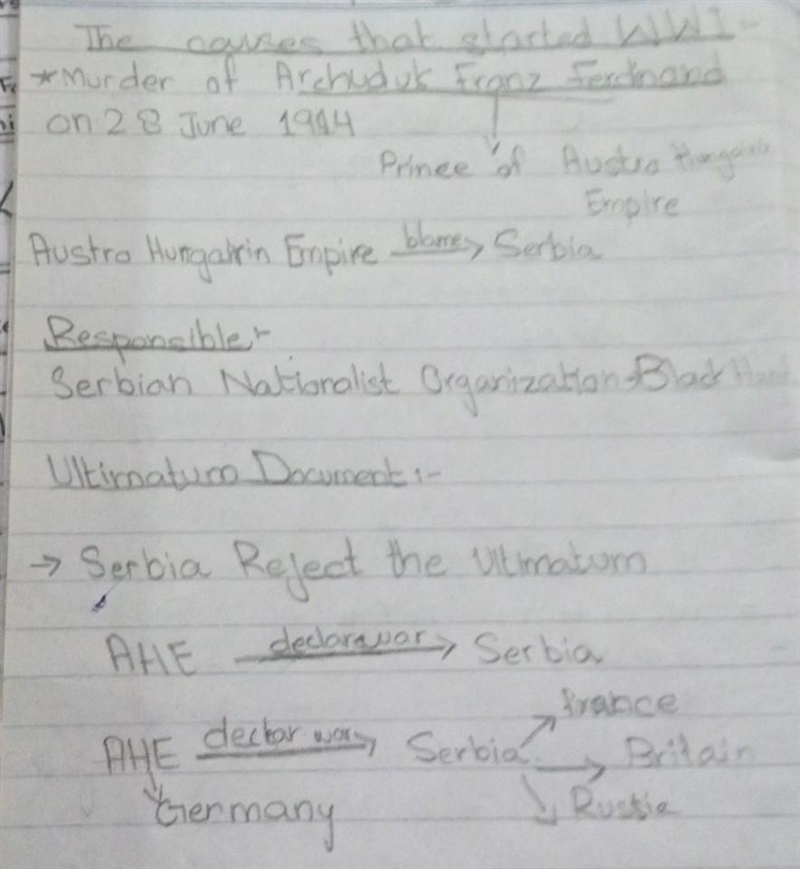 The causes that started WW1-
*Murder of Archuduk Franz Ferdinand
on 28 June 1914
Prince of Austro Hungarin
Empire
Austro Hungatrin Empire blame→ Serbia
Responsible:-
Serbian Nationalist Organization→Black Hand
Ultimatum Document:-
→ Serbia Reject the Ultimatum
AHE declara war→ Serbia
france
AHE declar war→ Serbia → Britain
Germany
Russia